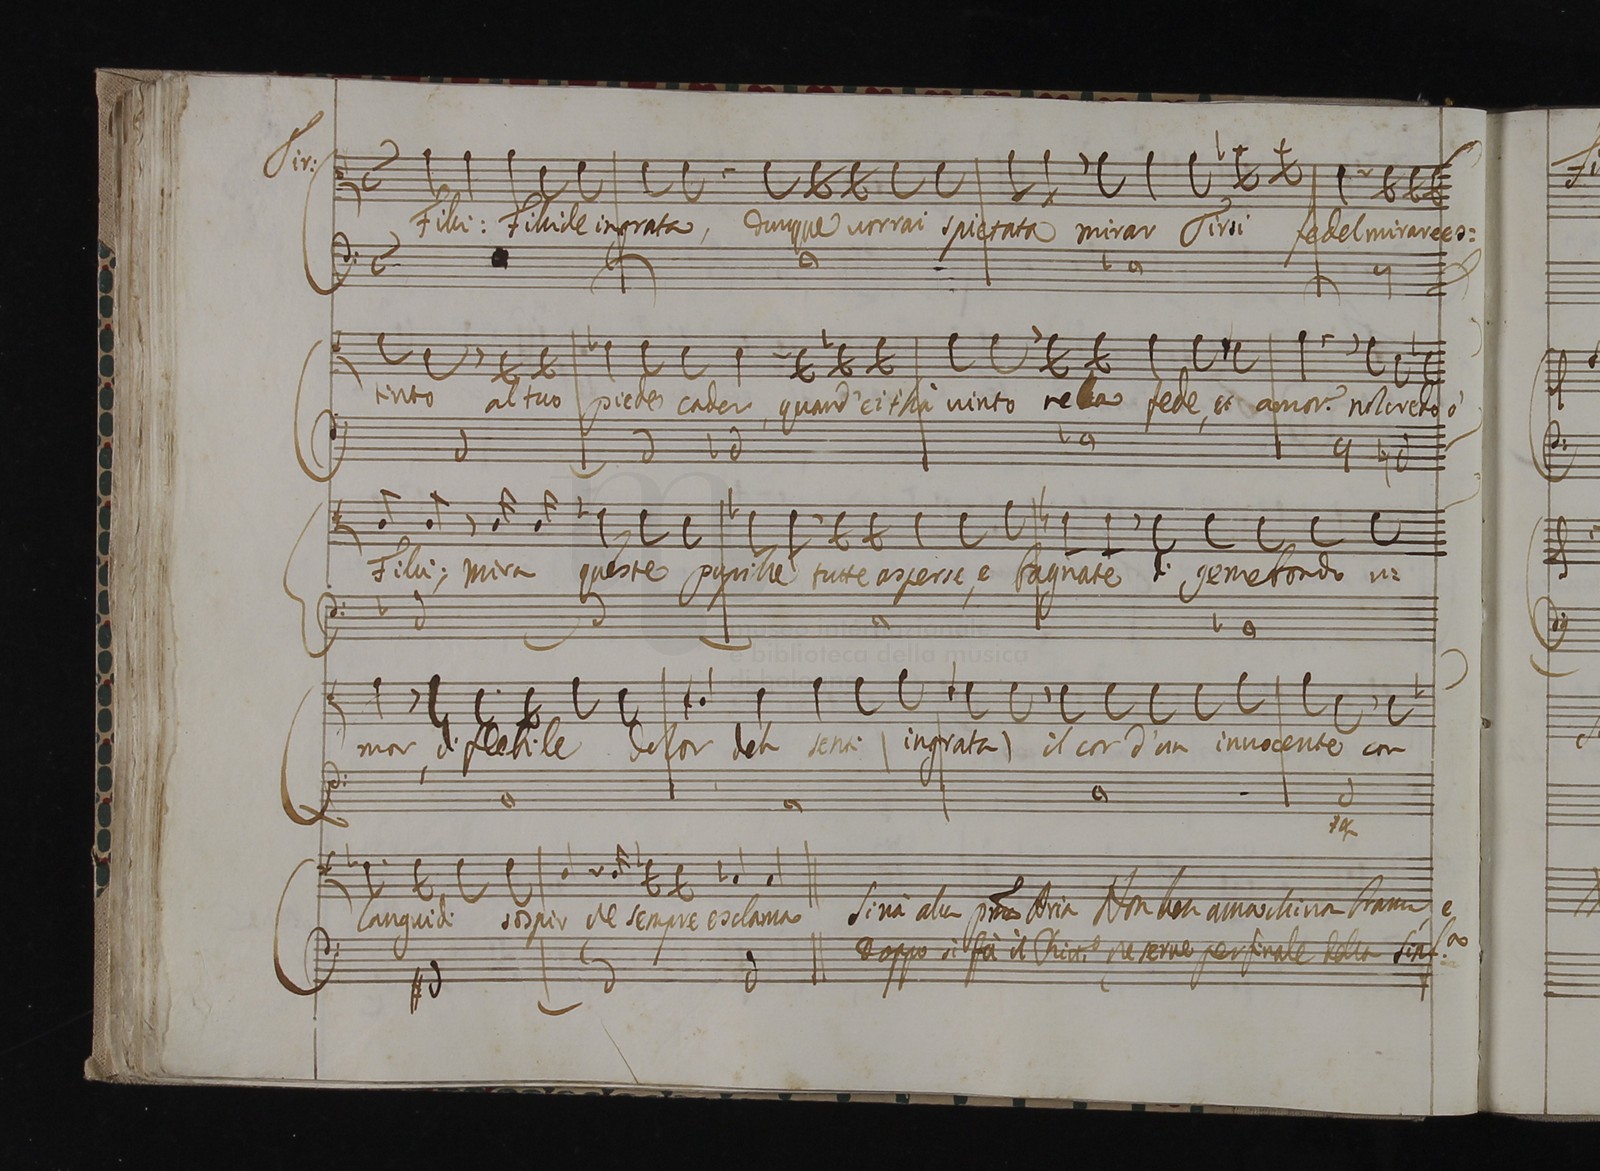 Tir:
Filli: Fillide ingrata, dunque vorrai spietata mirar Tirsi fedel mirare es=
tinto al tuo piede cader, quand'ei t'hà vinto nella fede, et amor? nol credo ò
Filli; mira queste pupille tutte asperse, e bagnate di gemebondo u=
mor, di flebile dolor deh senti (ingrata) il cor d'un innocente con
languidi sospir che sempre esclama
museo internazionale
e biblioteca della musica
di bologna
si và alla pma Aria Non ben
Doppo si fà il che serve per finale della Sinf.